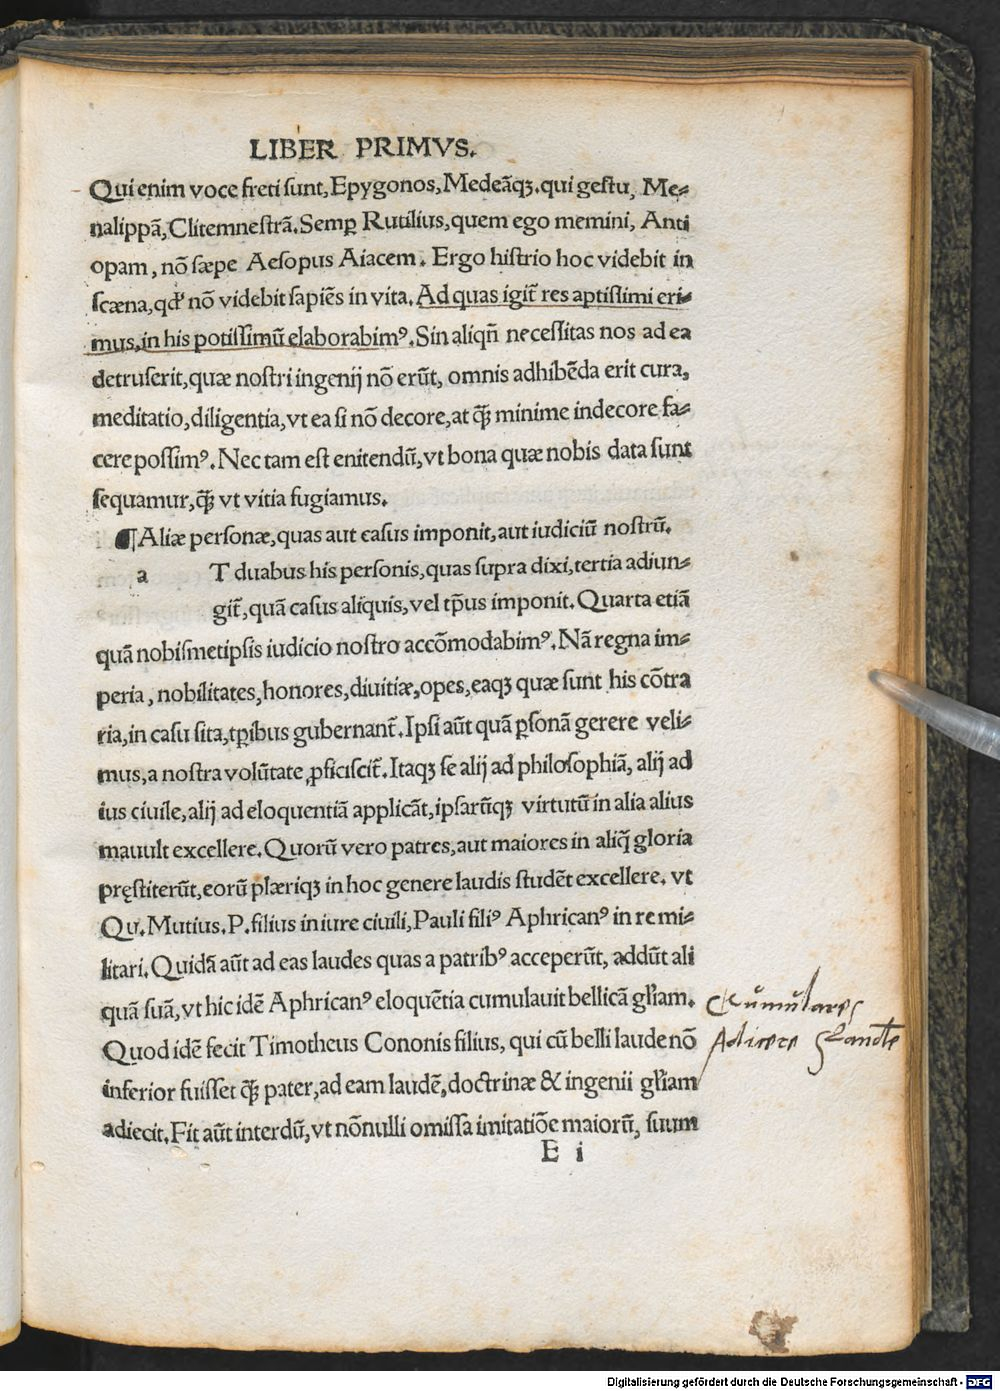 LIBER PRIMVS.
Qui enim voce freti sunt, Epygonos, Medeāqꝫ. qui gestu, Me⸗
nalippā, Clitemnestrā. Semꝑ Rutilius, quem ego memini, Anti
opam, nō sæpe Aesopus Aiacem. Ergo histrio hoc videbit in
scæna, qđ nō videbit sapiēs in vita. Ad quas igit̄ res aptissimi eri⸗
mus, in his potissimū elaborabimꝰ. Sin aliqñ necessitas nos ad ea
detruserit, quæ nostri ingenij nō erūt, omnis adhibēda erit cura,
meditatio, diligentia, vt ea si nō decore, at ꝙ̃ minime indecore fa⸗
cere possimꝰ. Nec tam est enitendū, vt bona quæ nobis data sunt
sequamur, ꝙ̃ vt vitia fugiamus.
¶Aliæ personæ, quas aut casus imponit, aut iudiciū nostrū.
a T duabus his personis, quas supra dixi, tertia adiun⸗
git̄, quā casus aliquis, vel tp̄us imponit. Quarta etiā
quā nobismetipsis iudicio nostro accōmodabimꝰ. Nā regna im⸗
peria, nobilitates, honores, diuitiæ, opes, eaqꝫ quæ sunt his cōtra
ria, in casu sita, tꝑibus gubernant̄. Ipsi aūt quā ꝑsonā gerere veli⸗
mus, a nostra volūtate ꝓficiscit̄. Itaqꝫ se alij ad philosophiā, alij ad
ius ciuile, alij ad eloquentiā applicāt, ipsarūqꝫ virtutū in alia alius
mauult excellere. Quorū vero patres, aut maiores in aliq̄ gloria
pręstiterūt, eorū plæriqꝫ in hoc genere laudis studēt excellere. vt
Qu. Mutius. P. filius in iure ciuili, Pauli filiꝰ Aphricanꝰ in re mi⸗
litari. Quidā aūt ad eas laudes quas a patribꝰ acceperūt, addūt ali
quā suā, vt hic idē Aphricanꝰ eloquētia cumulauit bellicā gl̄iam.
Quod idē fecit Timotheus Cononis filius, qui cū belli laude nō
inferior fuisset ꝙ̃ pater, ad eam laudē, doctrinæ & ingenii gl̄iam
adiecit. Fit aūt interdū, vt nōnulli omissa imitatiōe maiorū, suum
E i
Cumulare
Adicere
Digitalisierung gefördert durch die Deutsche Forschungsgemeinschaft - DFG